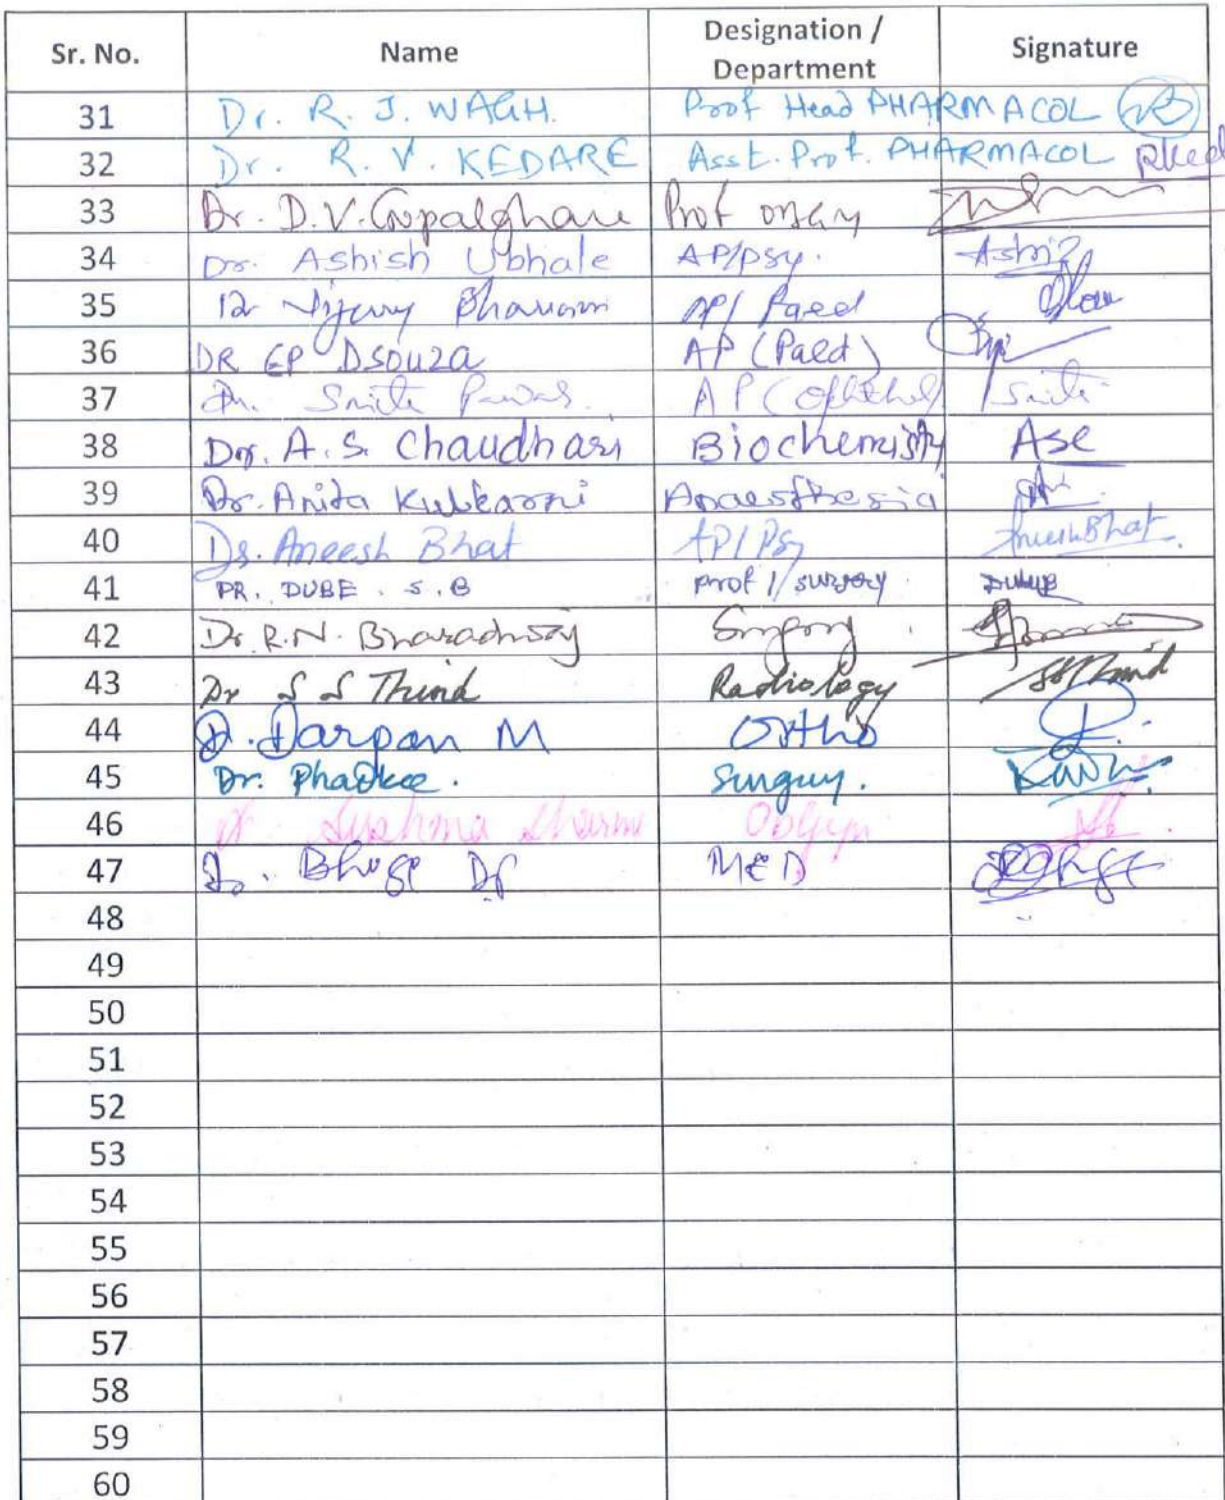 Sr. No. Name Designation / Department Signature
31 Dr. R. J. WAGH. Prof Head PHARMACOL
32 Dr. R. V. KEDARE Asst. Prof. PHARMACOL RKed
33 Dr. D.V. Gopalghare Prof
34 Dr. Ashish Ubhale AP/Psy.
35 Dr AP/ Paed
36 DR EP DSOUZA AP (Paed)
37 Dr. Smita Pawar. AP (Ophthal) Smita
38 Dr. A. S. Chaudhari Biochemistry ASC
39 Dr. Anita Kulkarni Anaesthesia
40 Dr. Aneesh Bhat AP/Psy AneeshBhat
41 DR. DUBE . S . B Prof / surgery
42 Dr. R. N. Bharadwaj Surgery
43 Dr S S Thind Radiology SSThind
44 Dr. Darpan M Ortho
45 Dr. Phadke. Surgery.
46 Dr Sushma Sharma ObGyn
47 Dr. MED
48
49
50
51
52
53
54
55
56
57
58
59
60